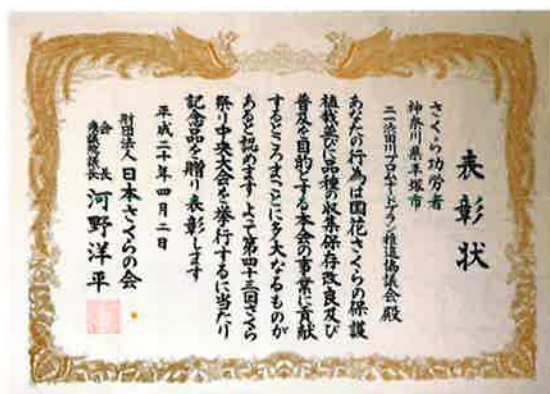 表彰状
さくら功労者
神奈川県平塚市
プロムナードプラン推進協議会殿
あなたの行為は国花さくらの保護
植栽並びに品種の収集保存改良及び
普及を目的とする本会の事業に貢献
するところまことに多大なるものが
あると認めますよって第四十三回さくら
祭り中央大会を挙行するに当たり
記念品を贈り表彰します
平成二十年四月二日
財団法人日本さくらの会
会長
衆議院議長
河野洋平